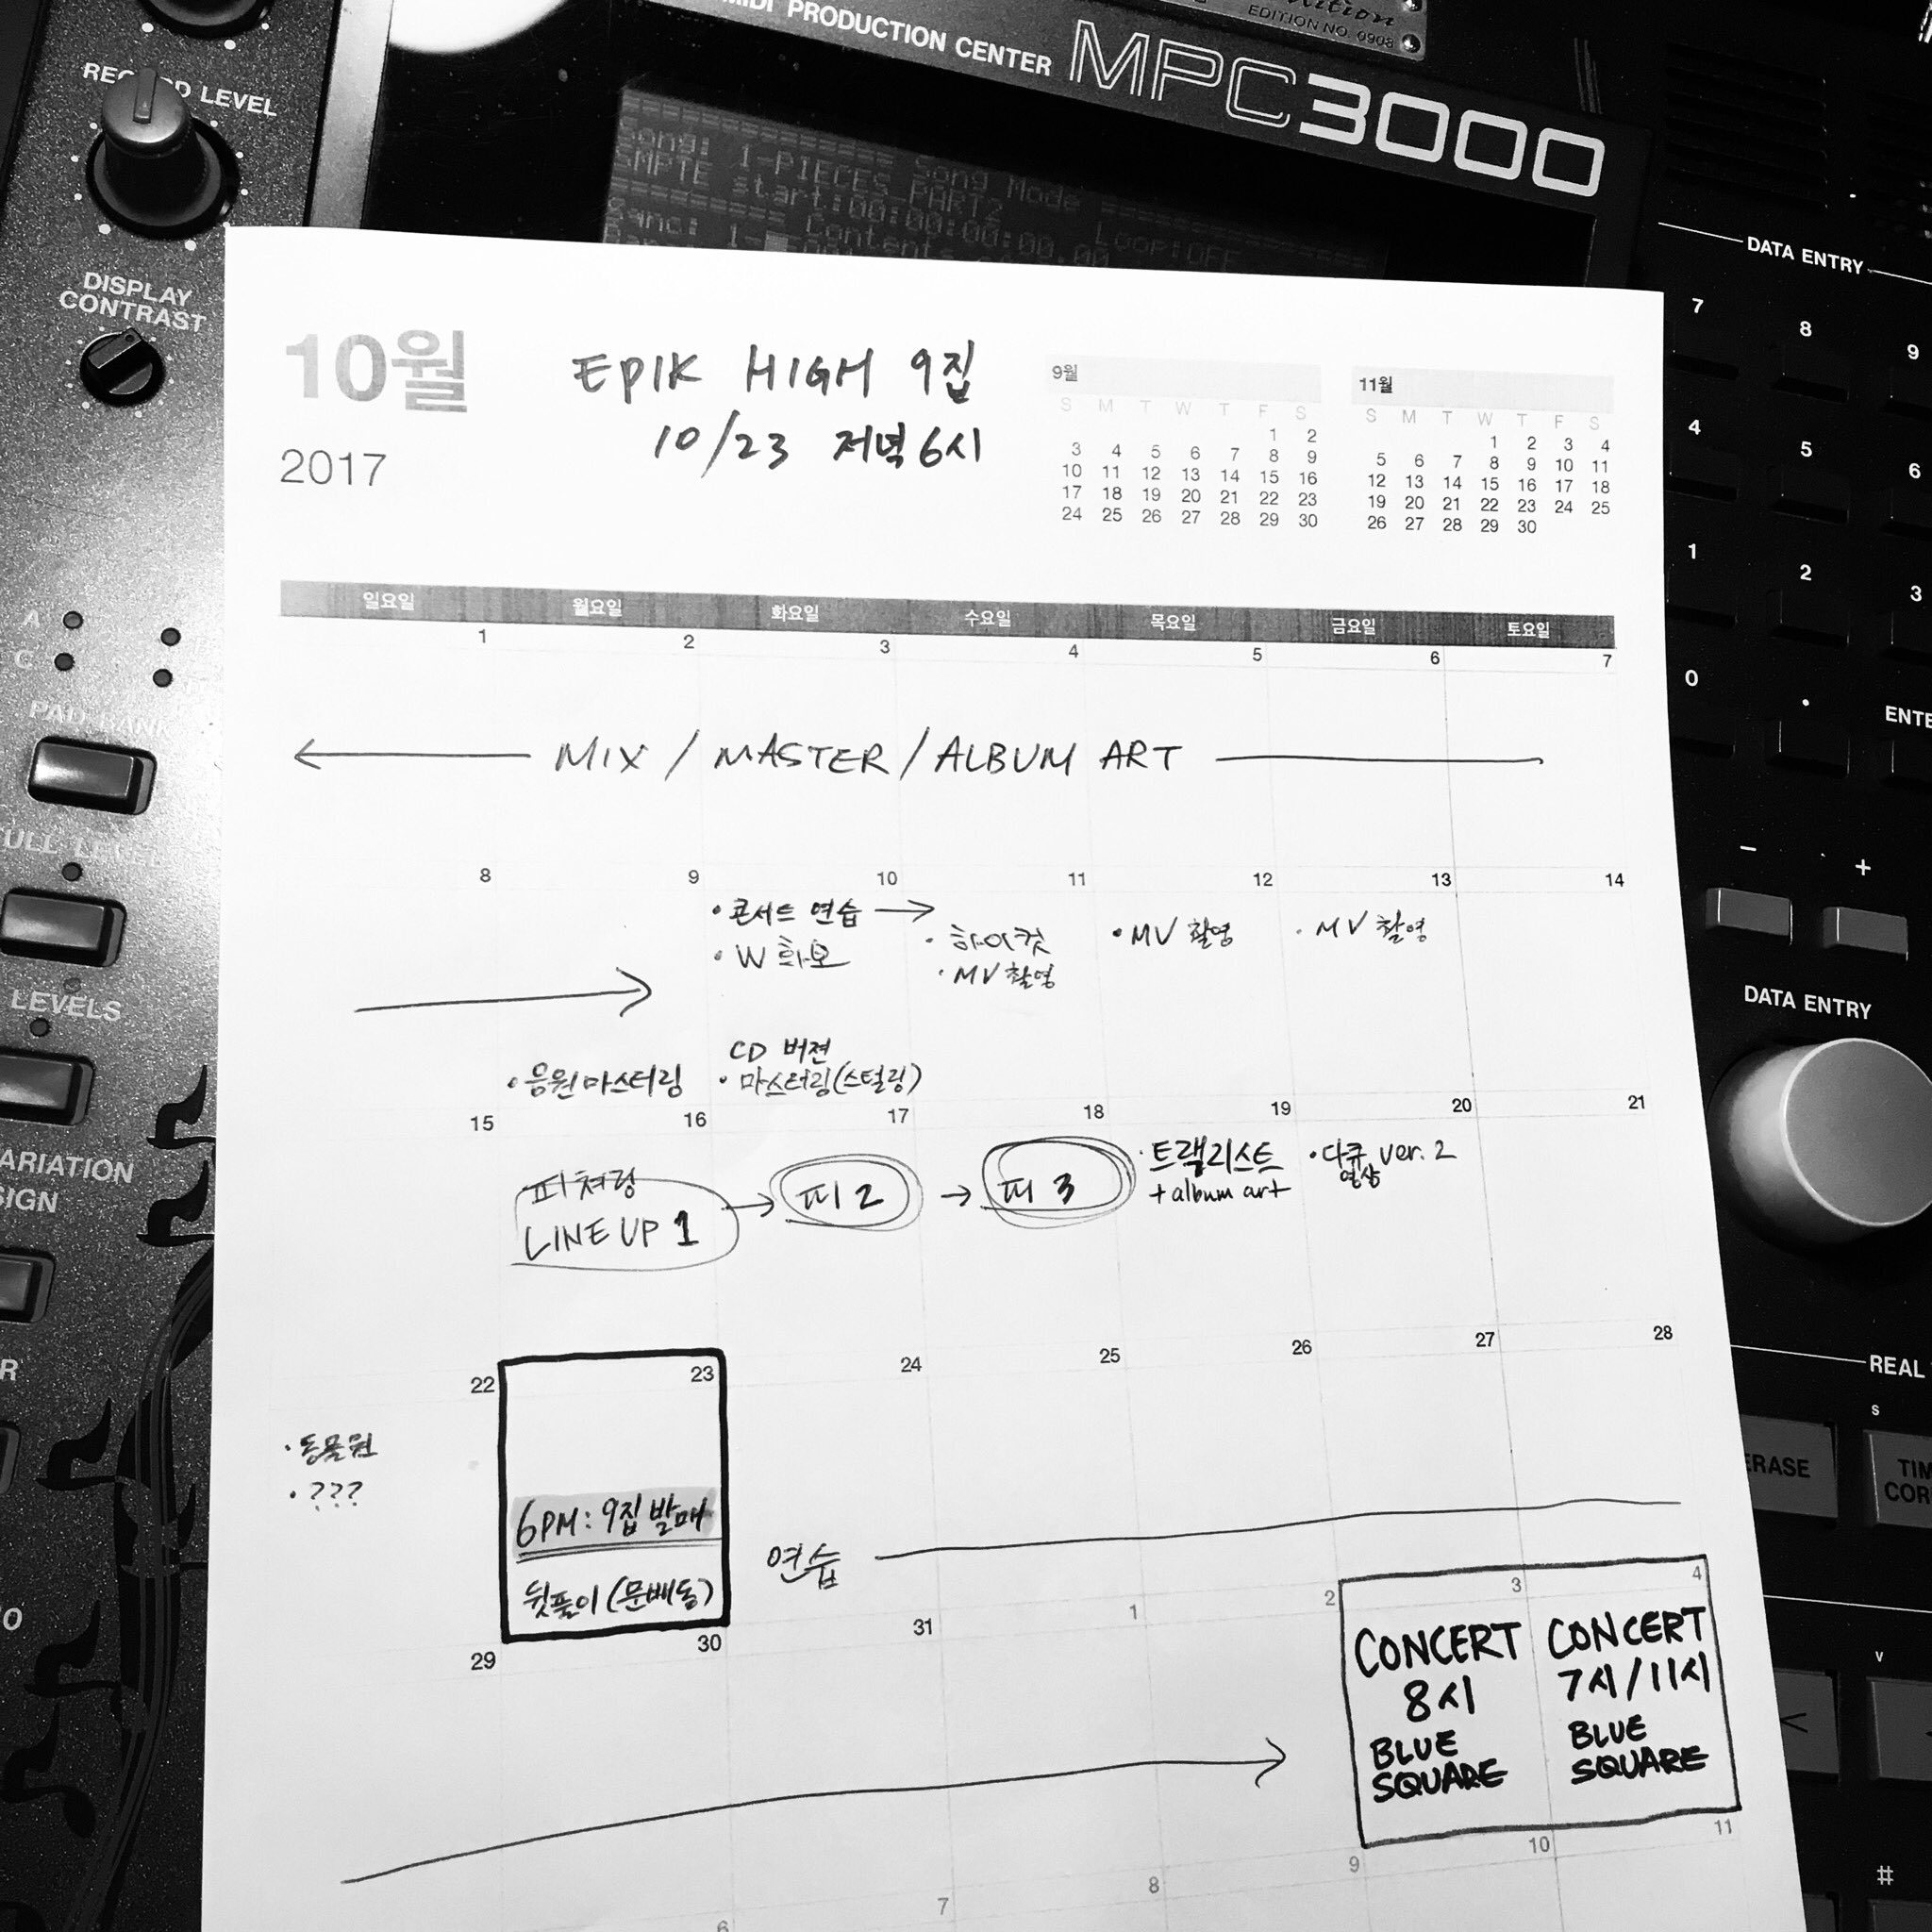 EDITION NO. 0908
MIDI PRODUCTION CENTER MPC3000
RECORD LEVEL
Song: 1-PIECES PART2
SMPTE start:00:00:00.00 Loop:OFF
DISPLAY
CONTRAST
DATA ENTRY
7 8 9
4 5 6
1 2 3
0 .
10월
2017
EPIK HIGH 9집
10/23 저녁 6시
9월
S M T W T F S
1 2
3 4 5 6 7 8 9
10 11 12 13 14 15 16
17 18 19 20 21 22 23
24 25 26 27 28 29 30
11월
S M T W T F S
1 2 3 4
5 6 7 8 9 10 11
12 13 14 15 16 17 18
19 20 21 22 23 24 25
26 27 28 29 30
일요일 월요일 화요일 수요일 목요일 금요일 토요일
1 2 3 4 5 6 7
MIX / MASTER / ALBUM ART
8 9 10 11 12 13 14
•콘서트 연습
•W 화보
•하이컷
•MV 촬영
•MV 촬영
•MV 촬영
•음원마스터링
CD 버젼
•마스터링(스털링)
15 16 17 18 19 20 21
피쳐링
LINE UP 1
피 2
피 3
•트랙리스트
+ album art
•다큐 ver. 2
영상
22 23 24 25 26 27 28
•동물원
•???
6PM: 9집 발매
뒷풀이 (문배동)
연습
29 30 31 1 2 3 4
CONCERT
8시
BLUE
SQUARE
CONCERT
7시/11시
BLUE
SQUARE
6 7 8 9 10 11
A
C
PAD BANK
FULL LEVEL
LEVELS
- +
DATA ENTRY
REAL
ERASE
#